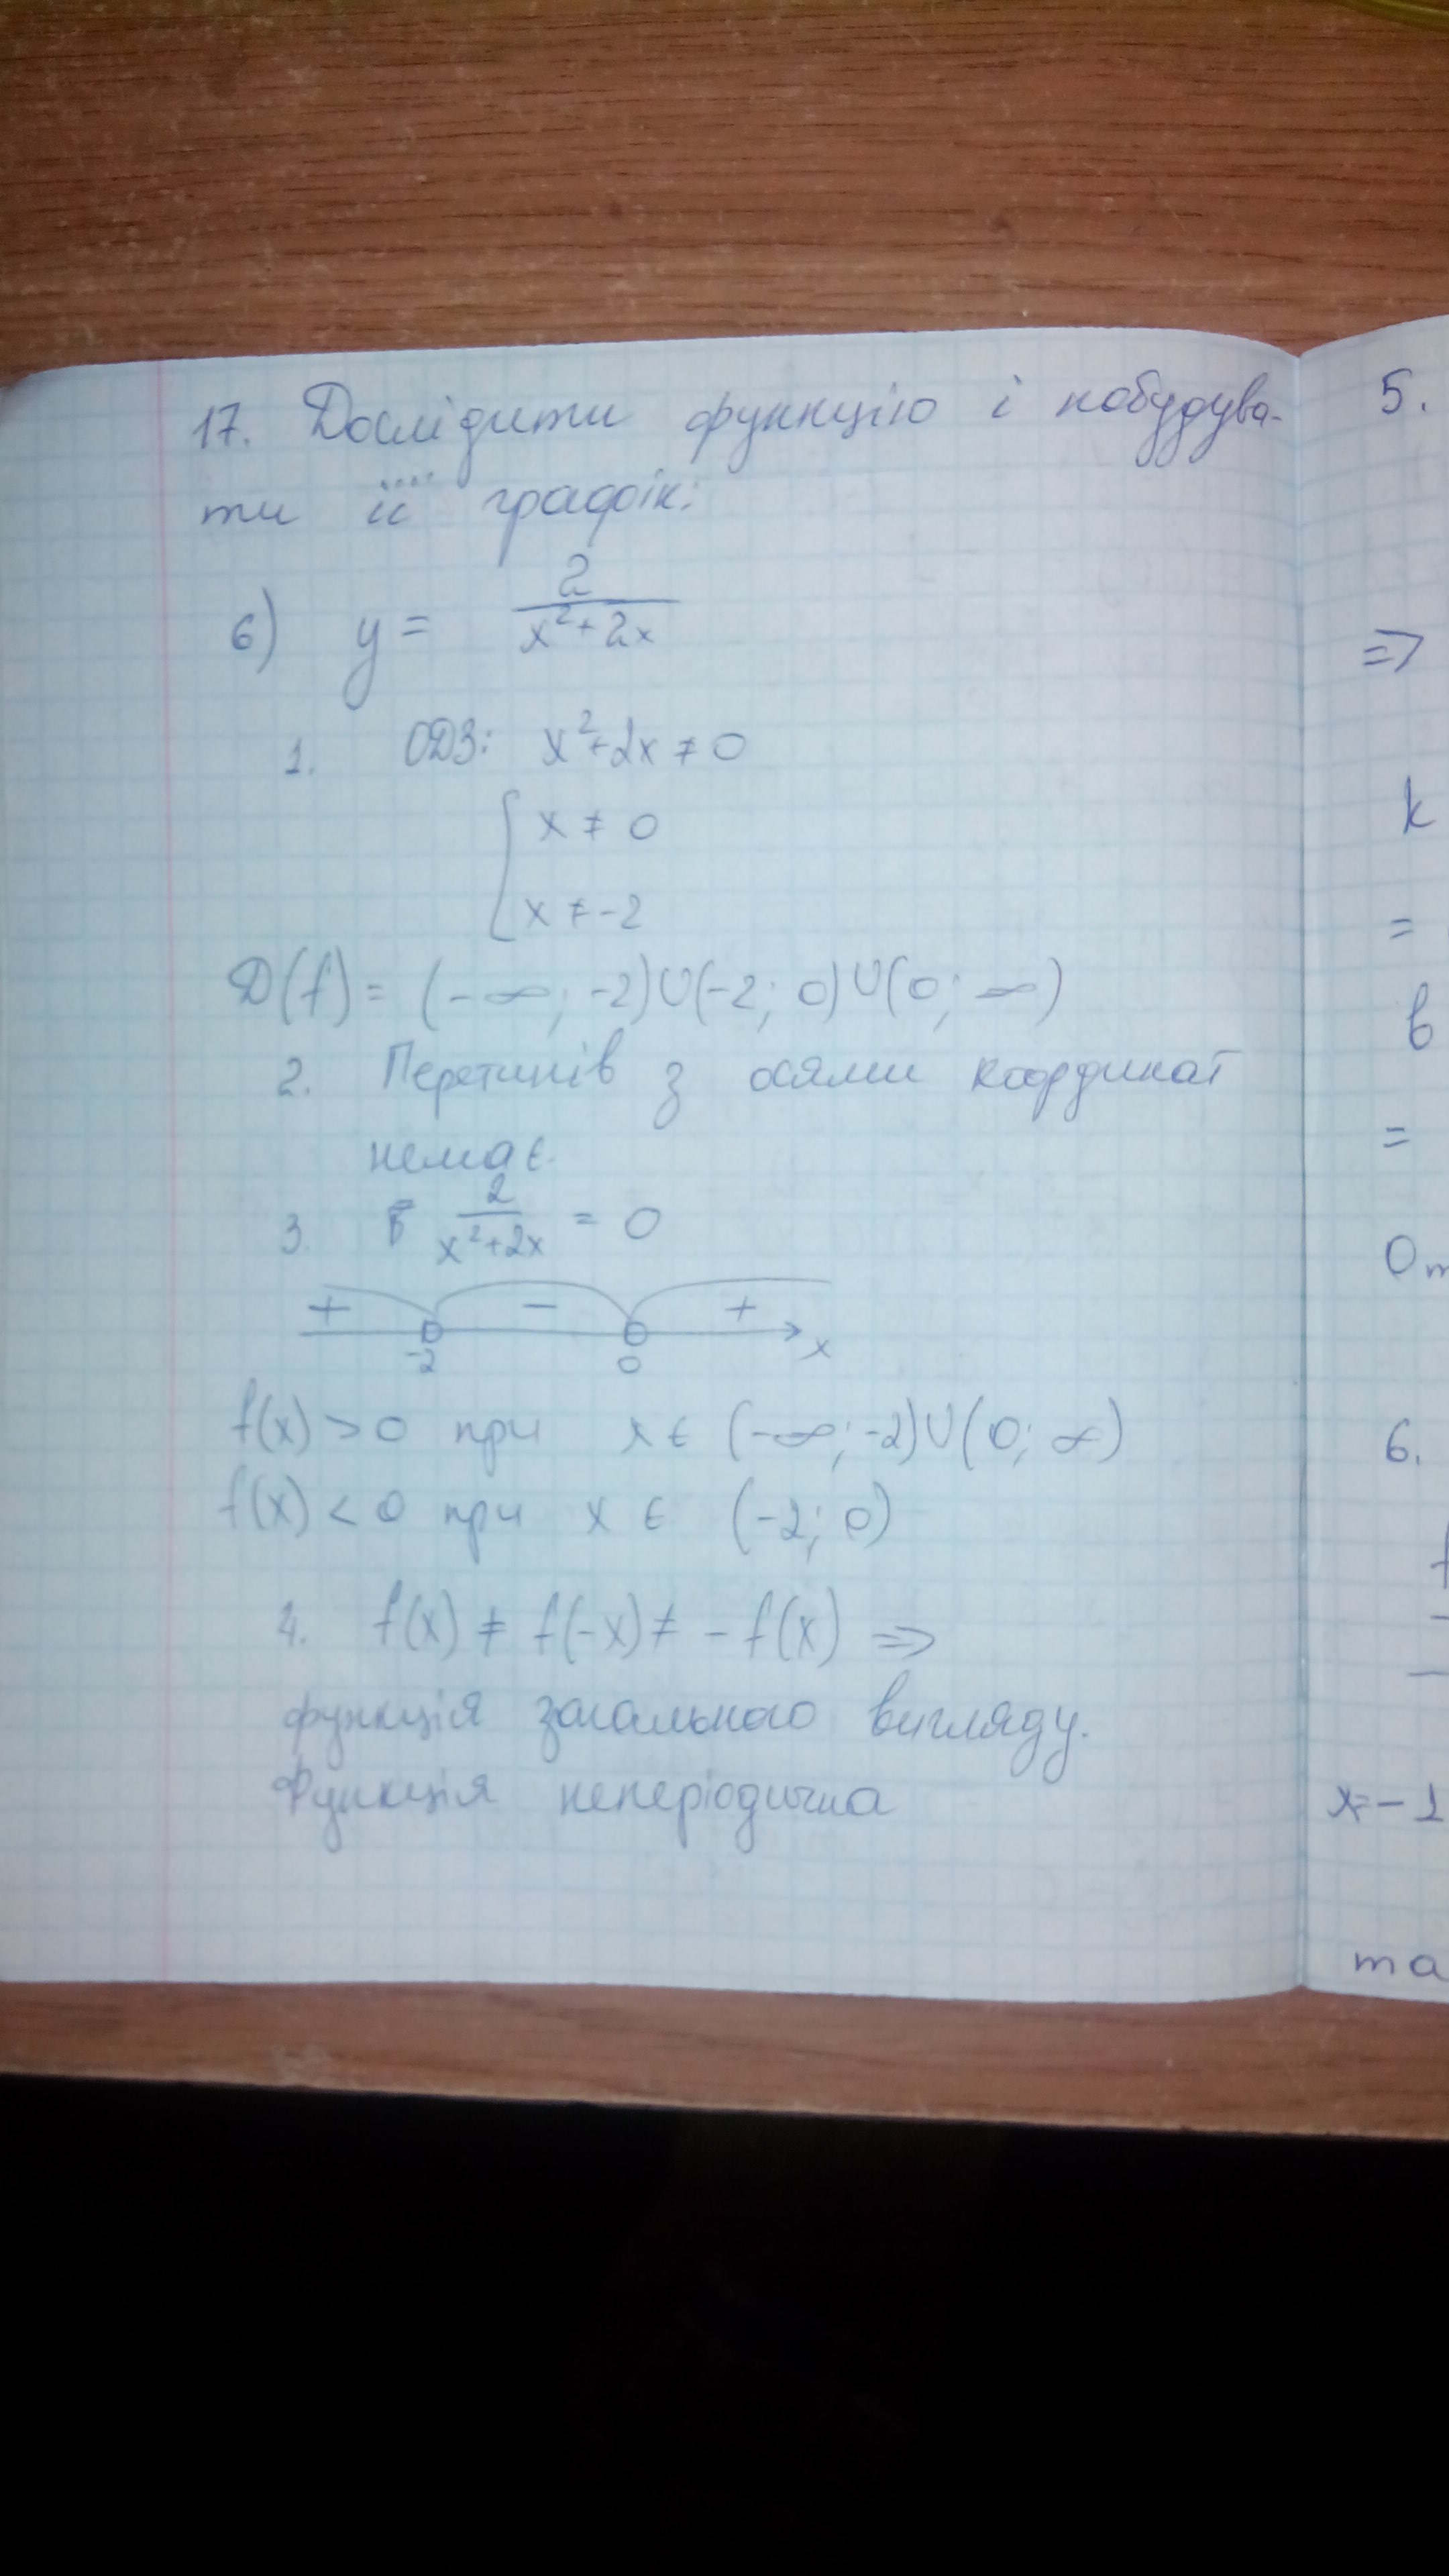 17. Дослідити функцію і побудува-
ти її графік:
6) y = 2/(x²+2x)
1. ОДЗ: x²+2x ≠ 0
{ x ≠ 0
x ≠ -2
D(f) = (-∞; -2)∪(-2; 0)∪(0; ∞)
2. Перетинів з осями координат
немає.
3. 2/(x²+2x) = 0
+ - +
-2 0 x
f(x) > 0 при x ∈ (-∞; -2)∪(0; ∞)
f(x) < 0 при x ∈ (-2; 0)
4. f(x) ≠ f(-x) ≠ - f(x) ⇒
функція загального вигляду.
Функція неперіодична
5.
⇒
k
=
b
=
От
6.
x=-1
та